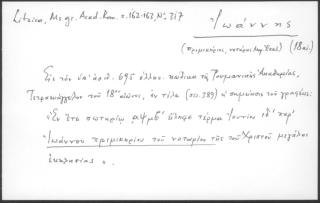 Litzica, Ms gr. Acad. Rom. σ. 162-163, Nο. 317
Ἰωάννης
(πριμικήριος, νοτάριος Μεγ. Ἐκκλ.) (18 αἰ.)
Εἰς τὸν ὑπ' ἀριθ. 695 ἑλλην. κώδικα τῆς Ρουμανικῆς Ἀκαδημίας,
Τετραευάγγελον τοῦ 18ου αἰῶνος, ἐν τέλει (σελ. 389) ἡ σημείωσις τοῦ γραφέως:
«Ἐν ἔτει σωτηρίῳ ͵αψμβʹ εἴληφε τέρμα Ἰουνίου ιδʹ παρ'
Ἰωάννου πριμικηρίου τοῦ νοταρίου τῆς τοῦ Χριστοῦ μεγάλης
ἐκκλησίας».